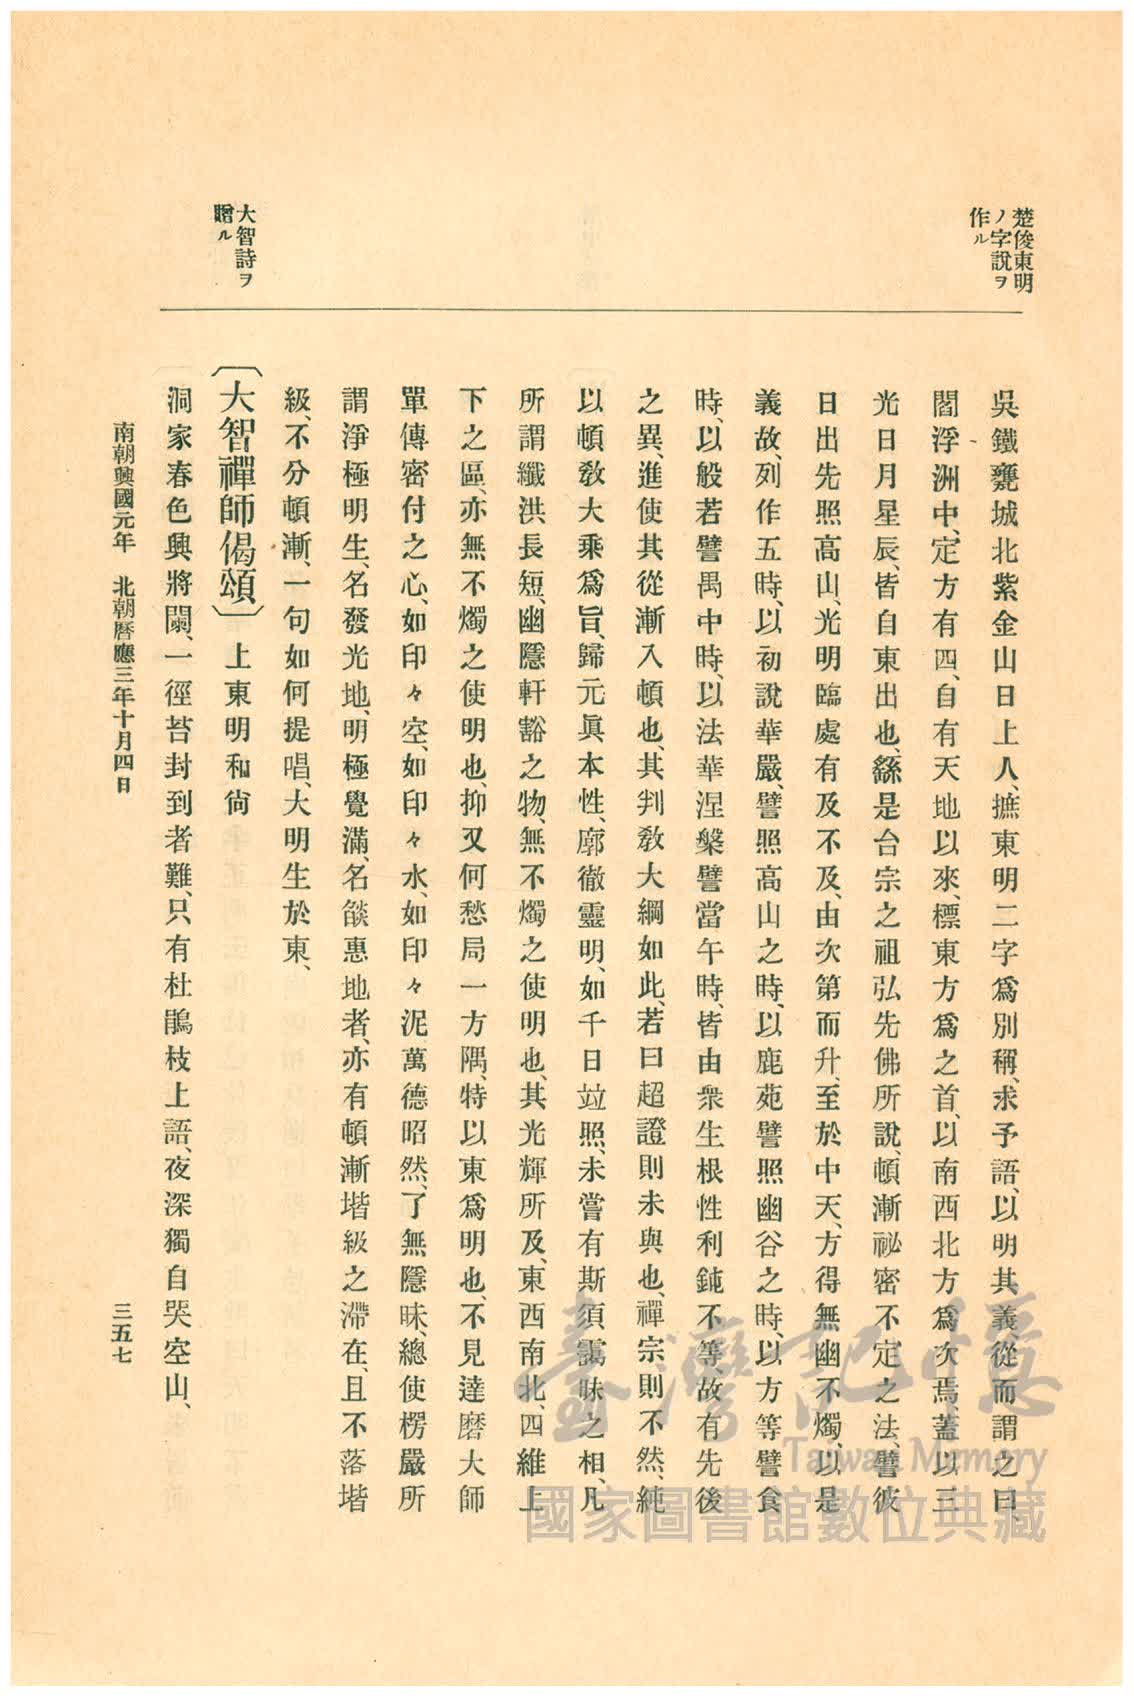 楚俊東明
ノ字說ヲ
作ル
吳鐵甕城北紫金山日上人、摭東明二字爲別稱、求予語、以明其義、從而謂之曰、
閻浮洲中、定方有四、自有天地以來、標東方爲之首、以南西北方爲次焉、蓋以三
光日月星辰、皆自東出也、繇是台宗之祖弘先佛所說、頓漸祕密不定之法、譬彼
日出先照高山、光明臨處有及不及、由次第而升、至於中天、方得無幽不燭、以是
義故、列作五時、以初說華嚴、譬照高山之時、以鹿苑譬照幽谷之時、以方等譬食
時、以般若譬禺中時、以法華涅槃譬當午時、皆由衆生根性利鈍不等、故有先後
之異、進使其從漸入頓也、其判敎大綱如此、若曰超證則未與也、禪宗則不然、純
以頓敎大乘爲旨、歸元眞本性、廓徹靈明、如千日竝照、未嘗有斯須靄昧之相、凡
所謂纖洪長短、幽隱軒豁之物、無不燭之使明也、其光輝所及、東西南北、四維上
下之區、亦無不燭之使明也、抑又何愁局一方隅、特以東爲明也、不見達磨大師
單傳密付之心、如印々空、如印々水、如印々泥、萬德昭然、了無隱昧、總使楞嚴所
謂淨極明生、名發光地、明極覺滿、名燄惠地者、亦有頓漸堦級之滯在、且不落堦
級、不分頓漸、一句如何提唱、大明生於東、
大智詩ヲ
贈ル
〔大智禪師偈頌〕 上東明和尙
洞家春色興將闌、一徑苔封到者難、只有杜鵑枝上語、夜深獨自哭空山、
南朝興國元年 北朝曆應三年十月四日
三五七
臺灣記憶
Taiwan Memory
國家圖書館數位典藏